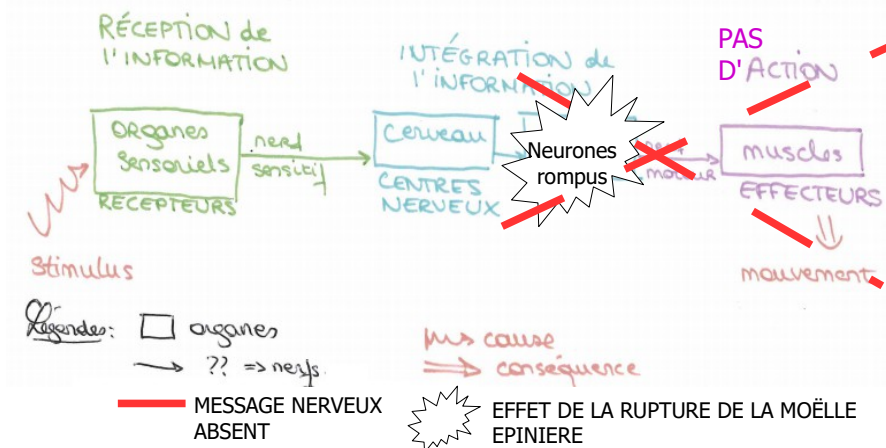 RÉCEPTION de
l'INFORMATION
INTÉGRATION de
l'INFORMATION
PAS
D'ACTION
ORGANES
Sensoriels
RECEPTEURS
nerf
sensitif
Cerveau
CENTRES
NERVEUX
Neurones
rompus
moteur
muscles
EFFECTEURS
Stimulus
mouvement
Légendes:
organes
?? => nerfs
cause
conséquence
MESSAGE NERVEUX
ABSENT
EFFET DE LA RUPTURE DE LA MOËLLE
EPINIERE